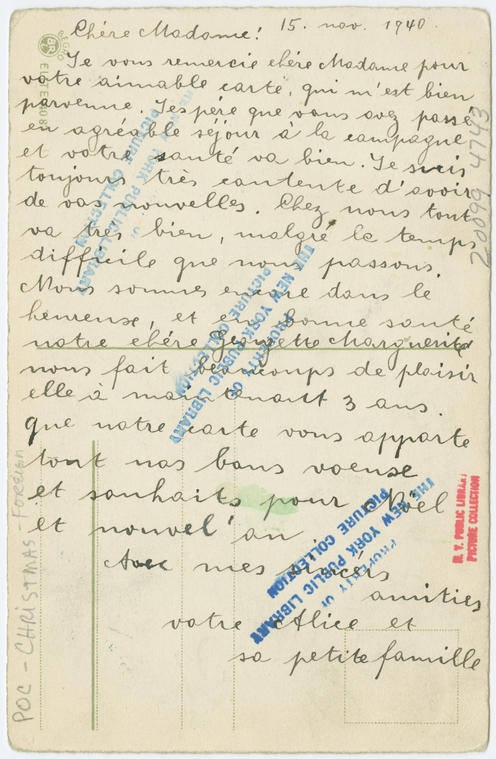 Chére Madame! 15. nov. 1940.
Je vous remercie chére Madame pour
votre aimable carte, qui m'est bien
parvenne. J'espére que vous avez passé
en agréable séjour à la campagne
et votre santé va bien. Je suis
toujours très contente d'avoir
de vos nouvelles. Chez nous tout
va très bien, malgré le temps
difficile que nous passons.
Nous sommes encore dans le
heureuse, et en bonne santé
notre chére Georgette Marguerite
nous fait beaucoups de plaisir
elle à maintenant 3 ans.
que notre carte vous apporte
tout nos bons voeuse
et souhaits pour Noël
et nouvel'an
Avec mes sincérs
amities
votre Alice et
sa petite famille
POC - CHRISTMAS - FOREIGN
20099 4743
PROPERTY OF
THE NEW YORK PUBLIC LIBRARY
PICTURE COLLECTION
PROPERTY OF
THE NEW YORK PUBLIC LIBRARY
PICTURE COLLECTION
PROPERTY OF
THE NEW YORK PUBLIC LIBRARY
PICTURE COLLECTION
N. Y. PUBLIC LIBRARY
PICTURE COLLECTION